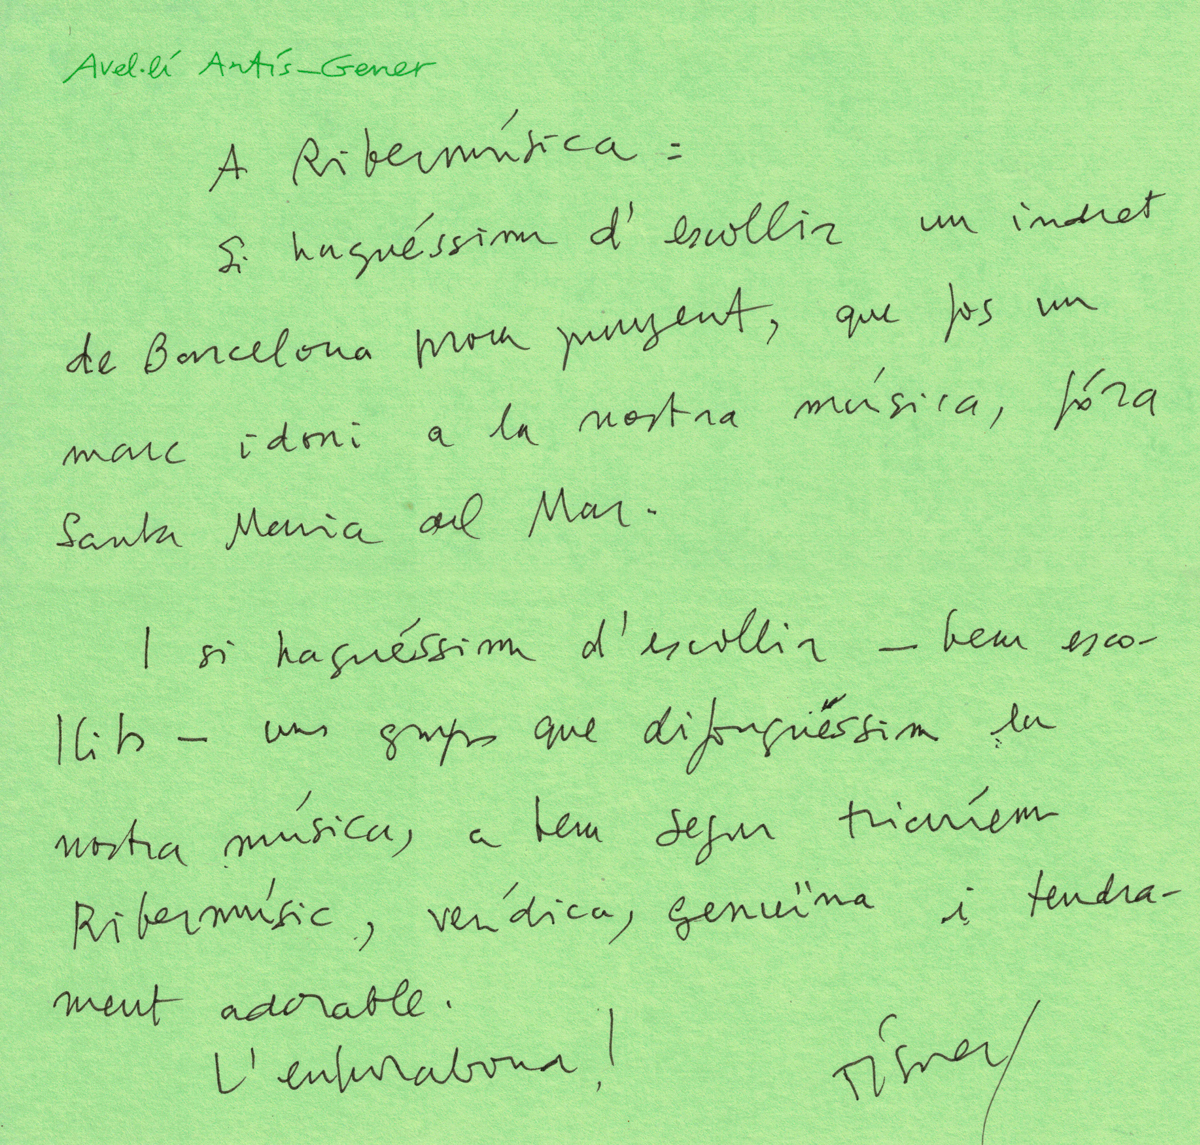 Avel·lí Artís-Gener
A Ribermúsica =
Si haguéssim d'escollir un indret
de Barcelona prou punyent, que fos un
marc idoni a la nostra música, fóra
Santa Maria del Mar.
I si haguéssim d'escollir – ben esco-
llits – uns grups que difonguéssim la
nostra música, a ben segur triaríem
Ribermúsic, verídica, genuïna i tendra-
ment adorable.
L'enhorabona!
Tísner